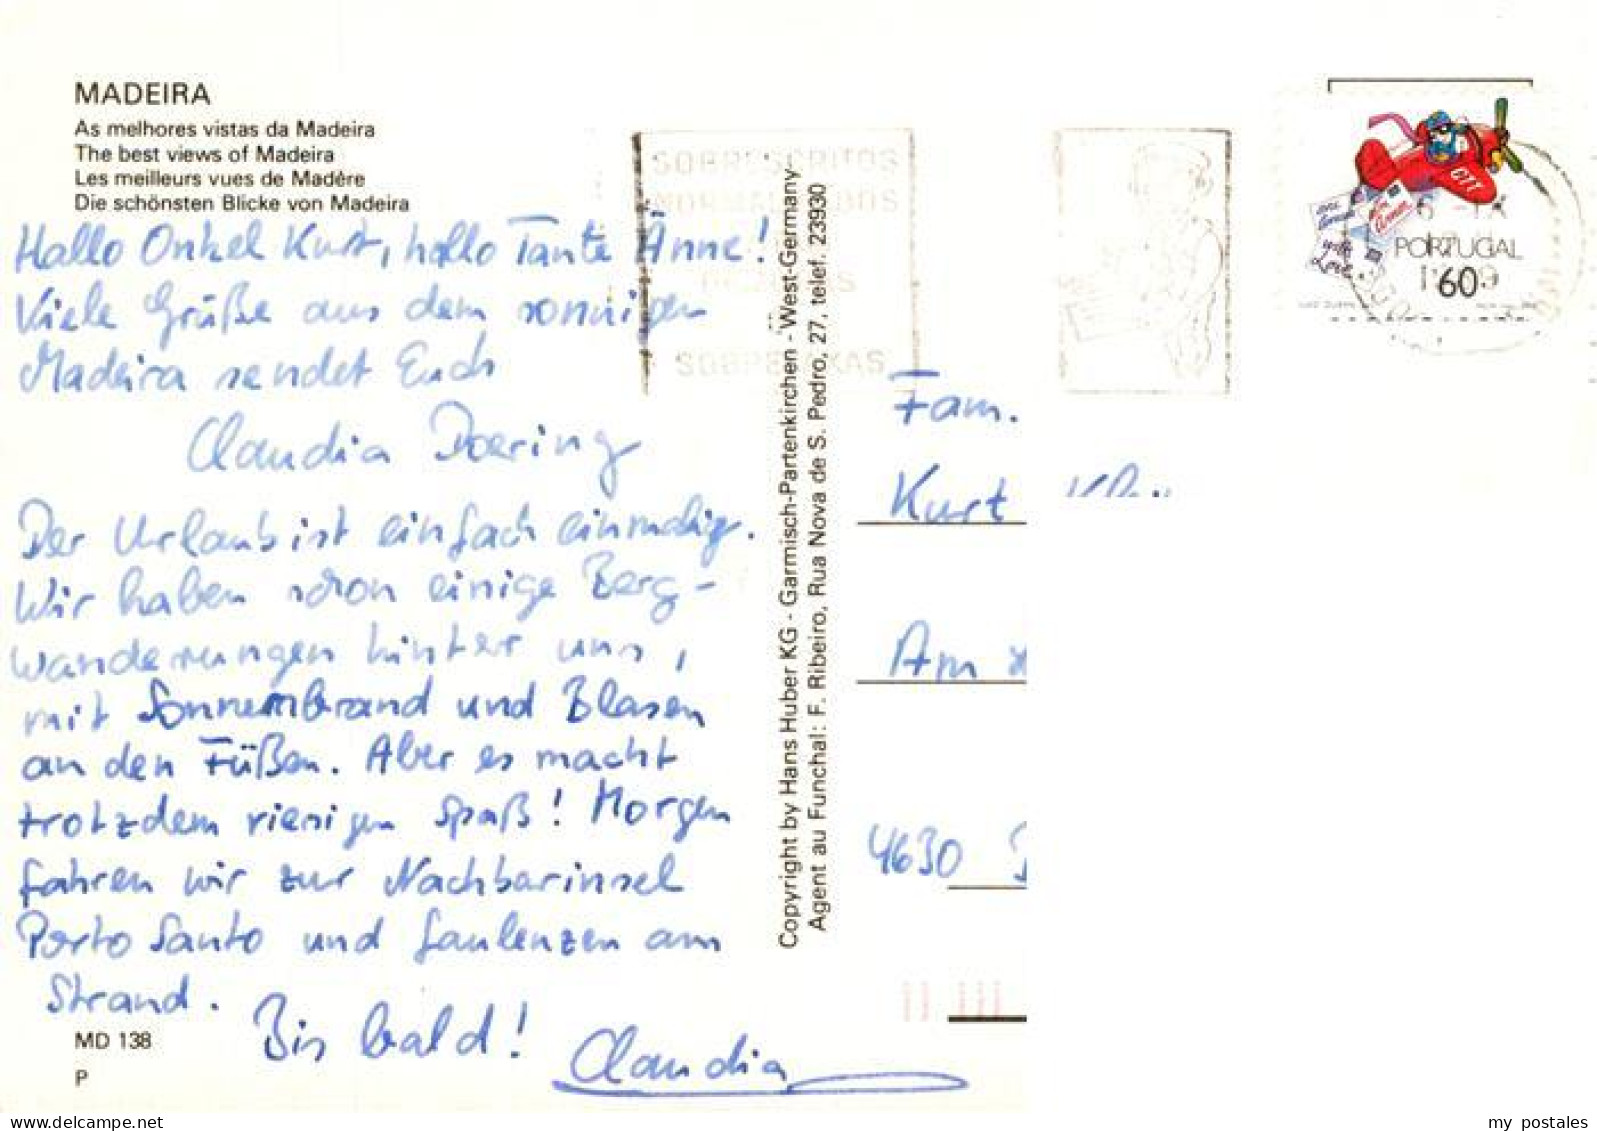 MADEIRA
As melhores vistas da Madeira
The best views of Madeira
Les meilleurs vues de Madère
Die schönsten Blicke von Madeira
Hallo Onkel Kurt, hallo Tante Änne!
Viele Grüße aus dem sonnigen
Madeira sendet Euch
Claudia Doering
Der Urlaub ist einfach einmalig.
Wir haben schon einige Berg-
wanderungen hinter uns,
mit Sonnenbrand und Blasen
an den Füßen. Aber es macht
trotzdem riesigen Spaß! Morgen
fahren wir zur Nachbarinsel
Porto Santo und faulenzen am
Strand.
Bis bald!
Claudia
MD 138
P
Copyright by Hans Huber KG - Garmisch-Partenkirchen - West-Germany
Agent au Funchal: F. Ribeiro, Rua Nova de S. Pedro, 27, telef. 23930
SOBRESCRITOS
CTT
with Love
PORTUGAL
60
Fam.
Kurt
Am
4630
delcampe.net
my_postales